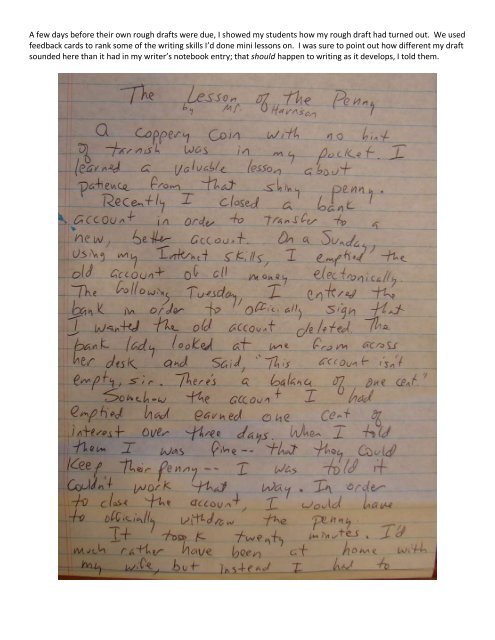 A few days before their own rough drafts were due, I showed my students how my rough draft had turned out. We used
feedback cards to rank some of the writing skills I'd done mini lessons on. I was sure to point out how different my draft
sounded here than it had in my writer's notebook entry; that should happen to writing as it develops, I told them.
The Lesson of the Penny
by Mr. Harrison
A coppery coin with no hint
of tarnish was in my pocket. I
learned a valuable lesson about
patience from that shiny penny.
Recently I closed a bank
account in order to transfer to a
new, better account. On a Sunday,
using my Internet skills, I emptied the
old account of all money electronically.
The following Tuesday, I entered the
bank in order to officially sign that
I wanted the old account deleted. The
bank lady looked at me from across
her desk and said, "This account isn't
empty, sir. There's a balance of one cent."
Somehow the account I had
emptied had earned one cent of
interest over three days. When I told
them I was fine -- that they could
keep their penny -- I was told it
couldn't work that way. In order
to close the account, I would have
to officially withdraw the penny.
It took twenty minutes. I'd
much rather have been at home with
my wife, but instead I had to